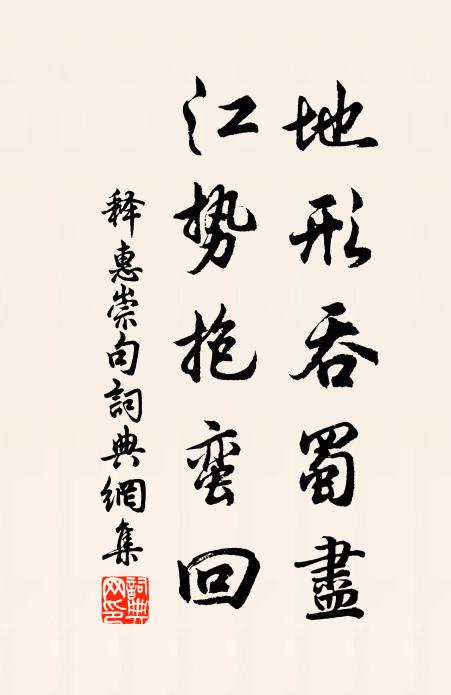 地形吞蜀盡
江勢抱蛮回
释惠崇句詞典網集
詞典网印